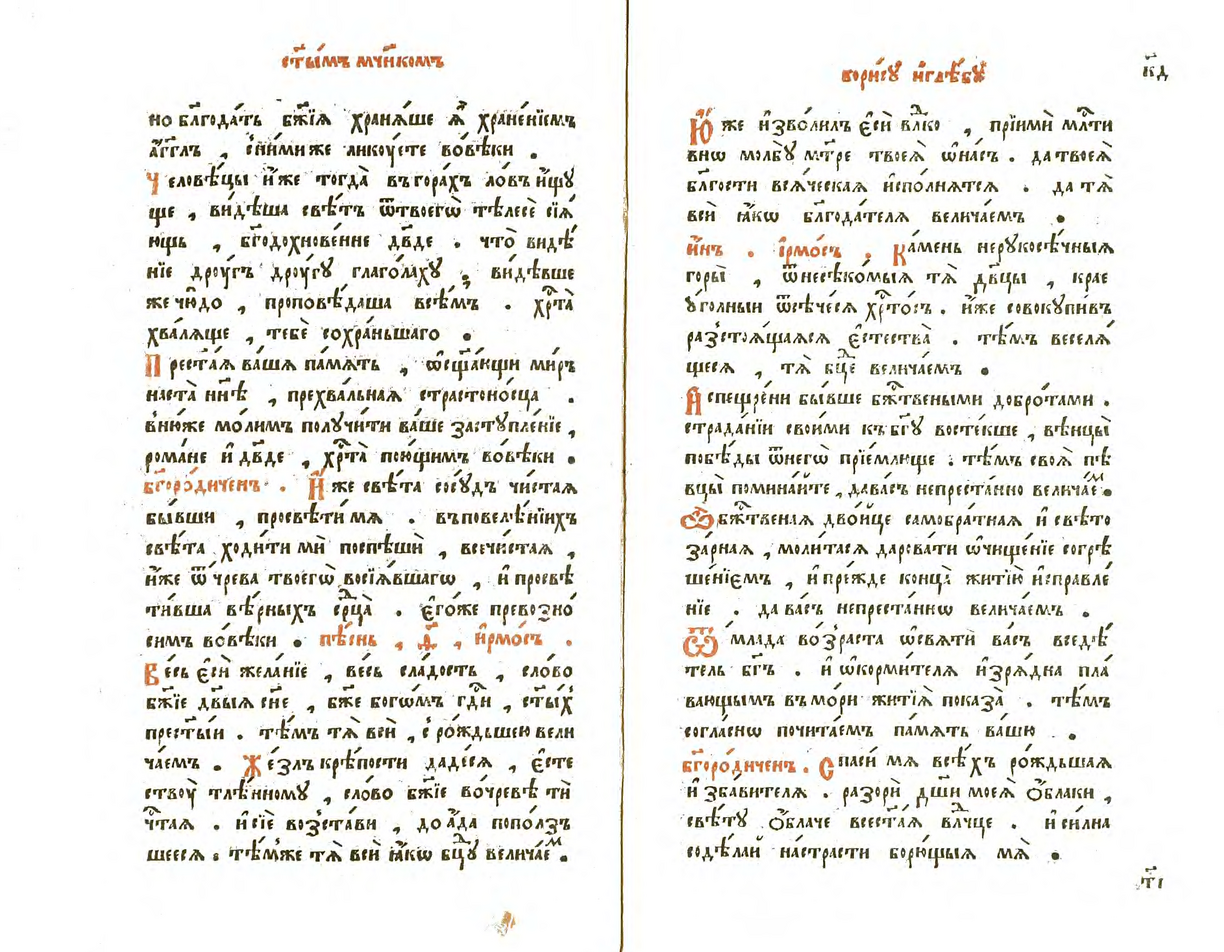 ст҃ы́мъ мч҃нкомъ
но бл҃года́ть бж҃їѧ храни́ше ѧ̀ хране́нїемъ
а҆́гг҃лъ , сни́миже ликоу́ете во́вѣки .
Человѣ́цы и҆́же тогда̀ въгора́хъ ло́въ и҆́щꙋ
ще , ви́дѣша свѣ́тъ ѿтвоегѡ̀ тѣ́лесѐ сїѧ́
ющь , бг҃одохнове́нне дв҃де . что̀ видѣ́
нїе дрꙋ́гъ дрꙋ́гꙋ глаго́лахꙋ ; ви́дѣвше
же чю́до , проповѣ́даша всѣ́мъ . хрⷭ҇та̀
хва́лѧще , тебѐ сохра́ньшаго .
Прест҃а́ѧ ва́шѧ па́мѧть , ѡ҆сщ҃а́ющи ми́ръ
наста̀ нн҃ѣ , прехва́льнаѧ страстоно́сца .
в̾ню́же мо́лимъ получи́ти ва́ше застꙋпле́нїе ,
рома́не и҆ дв҃де , хрⷭ҇та̀ пою́щимъ во́вѣки .
бг҃оро́диченъ . И҆́же свѣ́та сосꙋ́дъ чи́стаѧ
бы́вши , просвѣти́ мѧ . въповелѣ́нїихъ
свѣ́та ходи́ти мѝ поспѣшѝ , всечи́стаѧ ,
и҆́же ѿ чре́ва твоегѡ̀ восїѧ́вшагѡ , и҆ просвѣ
ти́вша вѣ́рныхъ срⷣца̀ . є҆го́же превозно́
симъ во́вѣки . пѣ́снь , ѳ҃ , і҆рмо́съ .
Ве́сь є҆сѝ жела́нїе , ве́сь сла́дость , сло́во
бж҃їе дв҃ыѧ сн҃е , бж҃е богѡ́мъ гдⷭ҇и , ст҃ы́хъ
прест҃ы́и . тѣ́мъ тѧ̀ всѝ , с̾ ро́ждьшею вели
ча́емъ . Же́злъ крѣ́пости даде́сѧ , є҆сте
ствꙋ̀ тлѣ́нномꙋ , сло́во бж҃їе во́чревѣ тѝ
чⷭ҇таѧ . и҆ сїѐ возста́ви , до а҆́да попо́лзъ
шеесѧ . тѣ́мже тѧ̀ всѝ ꙗ҆́кѡ бцⷣꙋ велича́еⷨ .
бори́сꙋ и҆гл́ѣбꙋ
к҃д
Ю҆́же и҆зво́лилъ є҆сѝ влⷣко , прїимѝ млⷭ҇ти
внѡ молбꙋ̀ мт҃ре твоеѧ̀ ѡ҆на́съ . да твоеѧ̀
бл҃гости всѧ́ческаѧ и҆спо́лнѧтсѧ . да тѧ̀
всѝ ꙗ҆́кѡ бл҃года́телѧ велича́емъ .
и҆́нъ . і҆рмо́съ . Ка́мень нерꙋкосѣ́чныѧ
горы̀ , ѿнесѣко́мыѧ тѧ̀ дв҃цы , крае
ꙋ҆го́лныи ѿсѣче́сѧ хрⷭ҇то́съ . и҆́же совокꙋпи́въ
разстоѧ́щаѧсѧ є҆стества̀ . тѣ́мъ веселѧ́
щесѧ , тѧ̀ бцⷣе велича́емъ .
И҆спещре́ни бы́вше бжⷭ҇твеными добро́тами .
страда́нїи свои́ми къ бг҃ꙋ восте́кше , вѣнцы̀
побѣ́ды ѿнегѡ̀ прїе́млюще . тѣ́мъ своѧ̀ пѣ
вцы̀ помина́йте , да ва́съ непреста́нно велича́еⷨ .
Ѽ бжⷭ҇твенаѧ дво́ице самобра́тнаѧ и҆ свѣ́то
за́рнаѧ , моли́тасѧ дарова́ти ѡ҆чище́нїе согрѣ
ше́нїемъ , и҆ пре́жде конца̀ житїю̀ и҆справле́
нїе . да ва́съ непреста́ннѡ велича́емъ .
Ѿ мла́да во́зраста ѡ҆свѧтѝ ва́съ всодѣ́
тель бг҃ъ . и҆ ѡ҆корми́телѧ и҆зрѧ́дна пла́
вающымъ въ мо́ри житїѧ̀ показа̀ . тѣ́мъ
согла́снѡ почита́емъ па́мѧть ва́шю .
бг҃оро́диченъ . Спаси́ мѧ всѣ́хъ ро́ждьшаѧ
и҆зба́вителѧ . разорѝ дш҃и моеѧ̀ ѻ҆́блаки ,
свѣ́тꙋ ѻ҆́блаче всест҃а́ѧ влⷣчце . и҆ си́лна
содѣ́лай на́страсти борю́щыѧ мѧ̀ .
т҃і